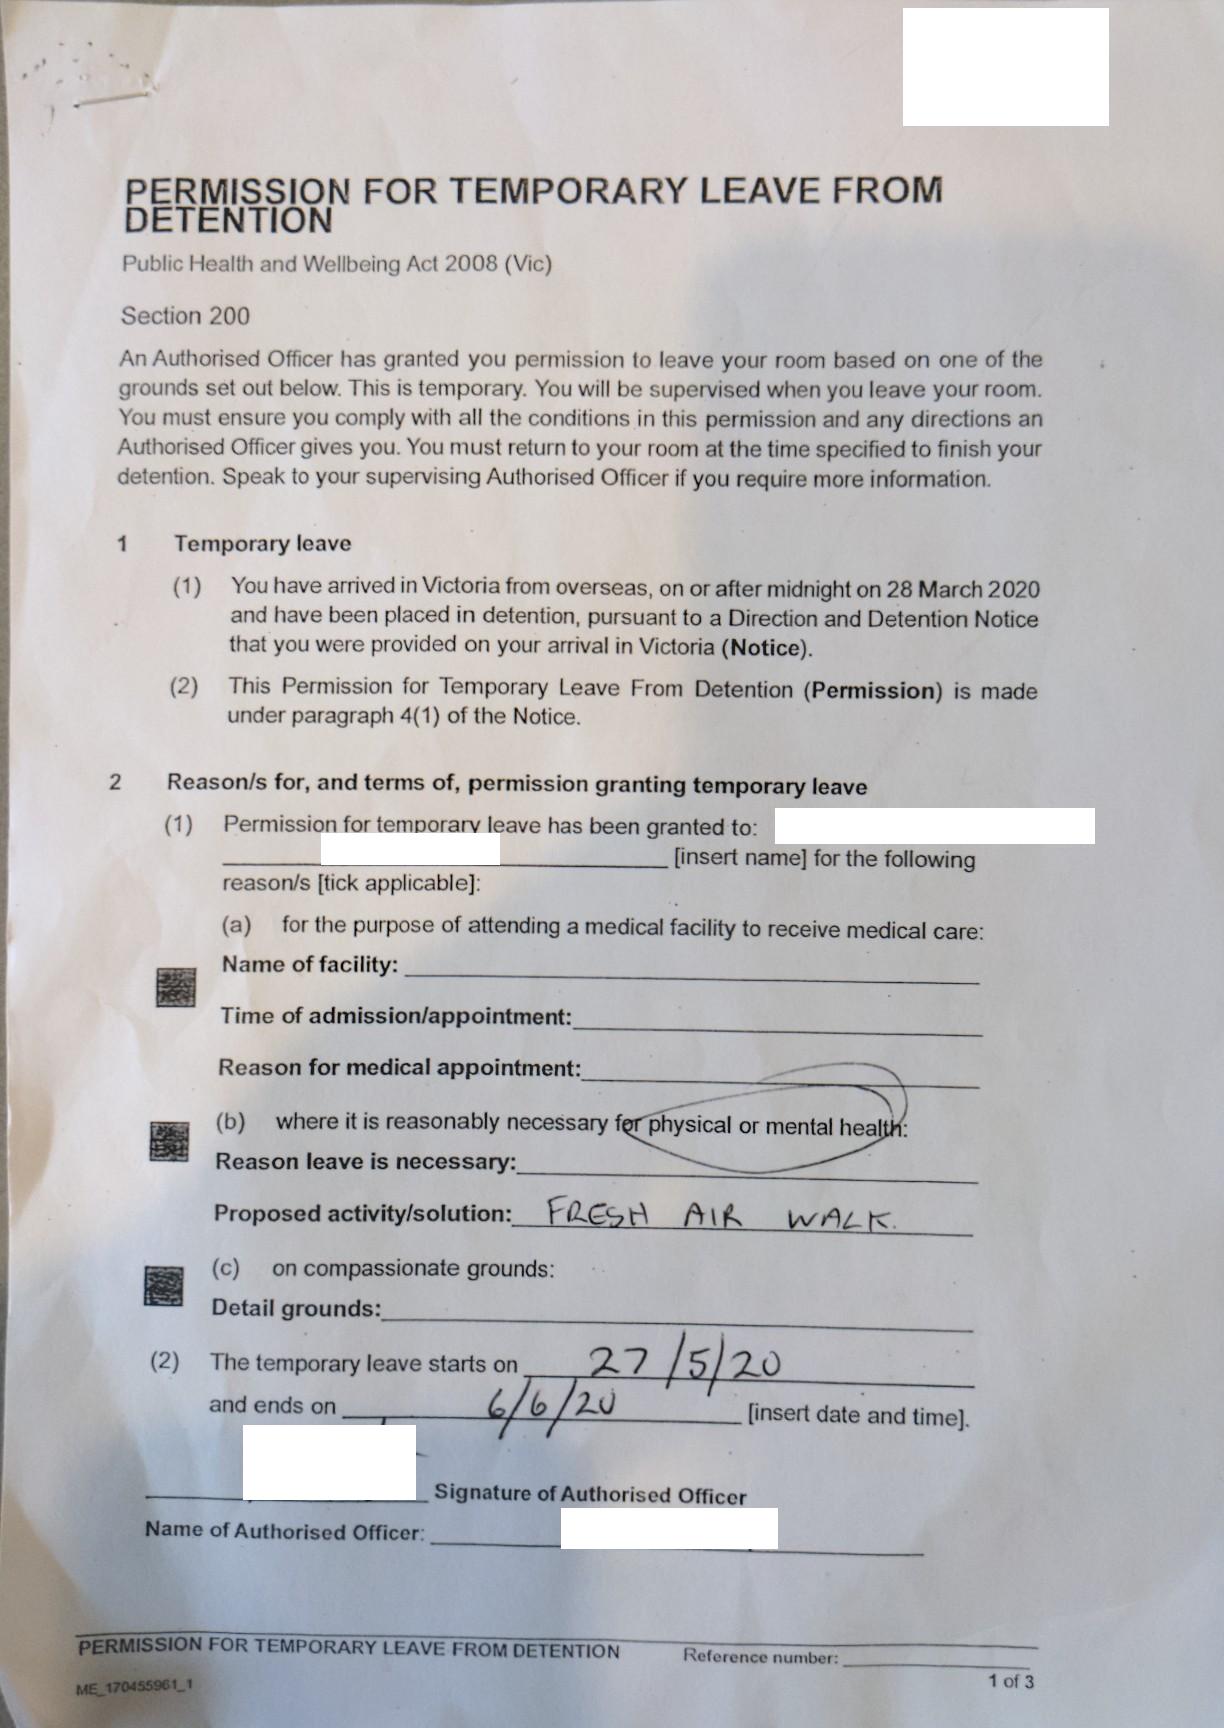 PERMISSION FOR TEMPORARY LEAVE FROM
DETENTION
Public Health and Wellbeing Act 2008 (Vic)
Section 200
An Authorised Officer has granted you permission to leave your room based on one of the
grounds set out below. This is temporary. You will be supervised when you leave your room.
You must ensure you comply with all the conditions in this permission and any directions an
Authorised Officer gives you. You must return to your room at the time specified to finish your
detention. Speak to your supervising Authorised Officer if you require more information.
1 Temporary leave
(1) You have arrived in Victoria from overseas, on or after midnight on 28 March 2020
and have been placed in detention, pursuant to a Direction and Detention Notice
that you were provided on your arrival in Victoria (Notice).
(2) This Permission for Temporary Leave From Detention (Permission) is made
under paragraph 4(1) of the Notice.
2 Reason/s for, and terms of, permission granting temporary leave
(1) Permission for temporary leave has been granted to:
[insert name] for the following
reason/s [tick applicable]:
(a) for the purpose of attending a medical facility to receive medical care:
Name of facility:
Time of admission/appointment:
Reason for medical appointment:
(b) where it is reasonably necessary for physical or mental health:
Reason leave is necessary:
Proposed activity/solution: FRESH AIR WALK.
(c) on compassionate grounds:
Detail grounds:
(2) The temporary leave starts on 27/5/20
and ends on 6/6/20 [insert date and time].
Signature of Authorised Officer
Name of Authorised Officer:
PERMISSION FOR TEMPORARY LEAVE FROM DETENTION Reference number:
ME_170455961_1 1 of 3